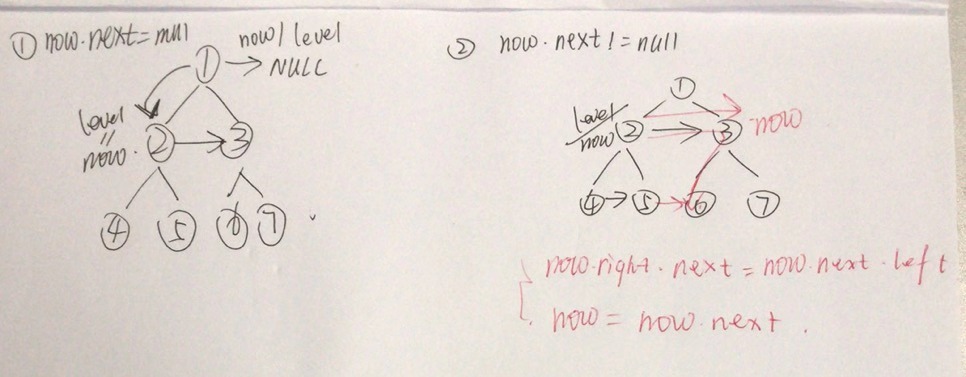 ① now.next=null
now/level
① → NULL
level
=
now.
② → ③
④ ⑤ ⑥ ⑦
② now.next!=null
①
level/now ② → ③ now
④ → ⑤ → ⑥ ⑦
now.right.next=now.next.left
now=now.next.